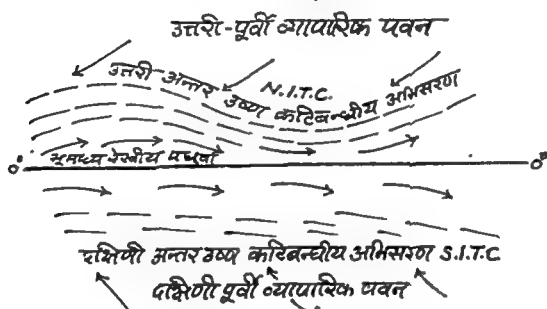 उत्तरी-पूर्वी व्यापारिक पवन
उत्तरी अन्तर उष्ण कटिबन्धीय अभिसरण
N.I.T.C.
भूमध्य रेखीय पछुवा
0° 0°
दक्षिणी अन्तर उष्ण कटिबन्धीय अभिसरण S.I.T.C
दक्षिणी पूर्वी व्यापारिक पवन